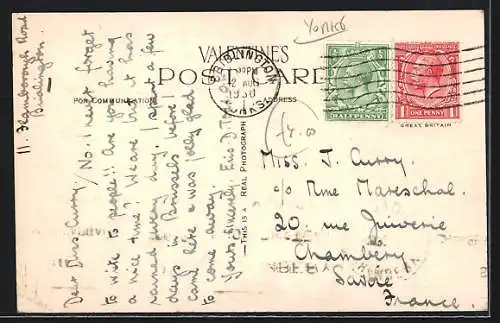 Yorks
VALENTINES
POST CARD
FOR COMMUNICATION
ADDRESS
BRIDLINGTON
YORKS
12 AUG
1930
HALFPENNY
ONE PENNY
GREAT BRITAIN
THIS IS A REAL PHOTOGRAPH
11. Flamborough Road
Bridlington.
Dear Miss Curry, / No. I never forget
to write to people!! Are you having
a nice time? We are but it has
rained every day. I spent a few
days in Brussels before I
came here & was jolly glad
to come away.
Yours sincerely, Eric D.
Miss J. Curry.
c/o Mme Mareschal.
20 rue Juiverie
Chambery
Savoie
France.